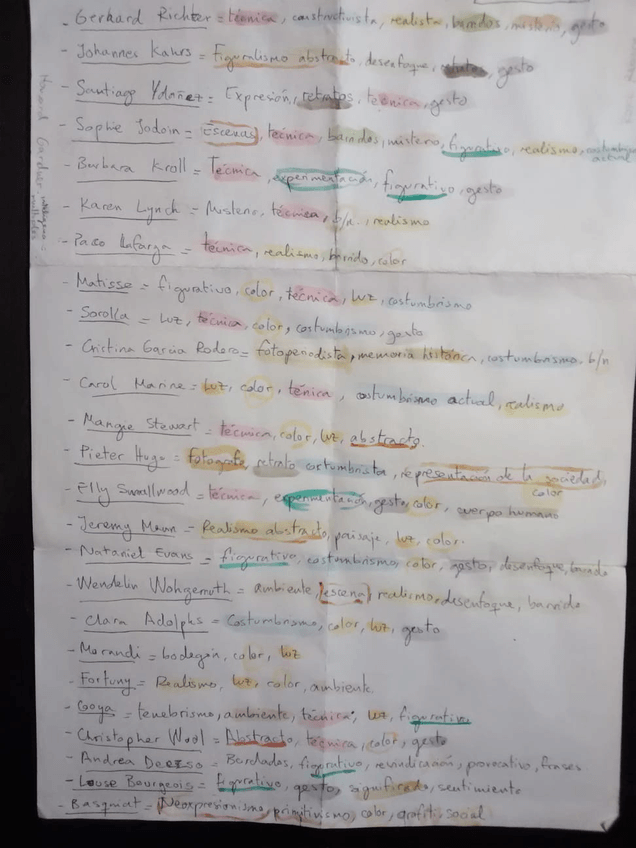 - Gerhard Richter = técnica, constructivista, realista, barridos, misterio, gesto
- Johannes Kahrs = Figuralismo abstracto, desenfoque, retratos, gesto
- Santiago Ydañez = Expresión, retratos, técnica, gesto
- Sophie Jodoin = Escenas, técnica, barridos, misterio, figurativo, realismo, costumbrismo actual
- Barbara Kroll = Técnica, experimentación, figurativo, gesto
- Karen Lynch = Misterio, técnica, b/n, realismo
- Paco Lafarga = técnica, realismo, barrido, color
- Matisse = figurativo, color, técnica, luz, costumbrismo
- Sorolla = luz, técnica, color, costumbrismo, gesto
- Cristina Garcia Rodero = fotoperiodista, memoria histórica, costumbrismo, b/n
- Carol Marine = luz, color, ténica, costumbrismo actual, realismo
- Mangie Stewart = técnica, color, luz, abstracto.
- Pieter Hugo = fotografo, retrato costumbrista, representación de la sociedad, color
- Elly Smallwood = técnica, experimentación, gesto, color, cuerpo humano
- Jeremy Mann = Realismo abstracto, paisaje, luz, color.
- Nataniel Evans = figurativo, costumbrismo, color, gesto, desenfoque, barrido
- Wendelin Wohlgemuth = ambiente, escena, realismo, desenfoque, barrido
- Clara Adolphs = Costumbrismo, color, luz, gesto
- Morandi = bodegón, color, luz
- Fortuny = Realismo, luz, color, ambiente
- Goya = tenebrismo, ambiente, técnica, luz, figurativo
- Christopher Wool = Abstracto, técnica, color, gesto
- Andrea DEZSO = Bordados, figurativo, revindicación, provocativo, frases
- Louse Bourgeois = figurativo, gesto, significado, sentimiento
- Basqmat = Neoxpresionismo, primitivismo, color, grafiti, social